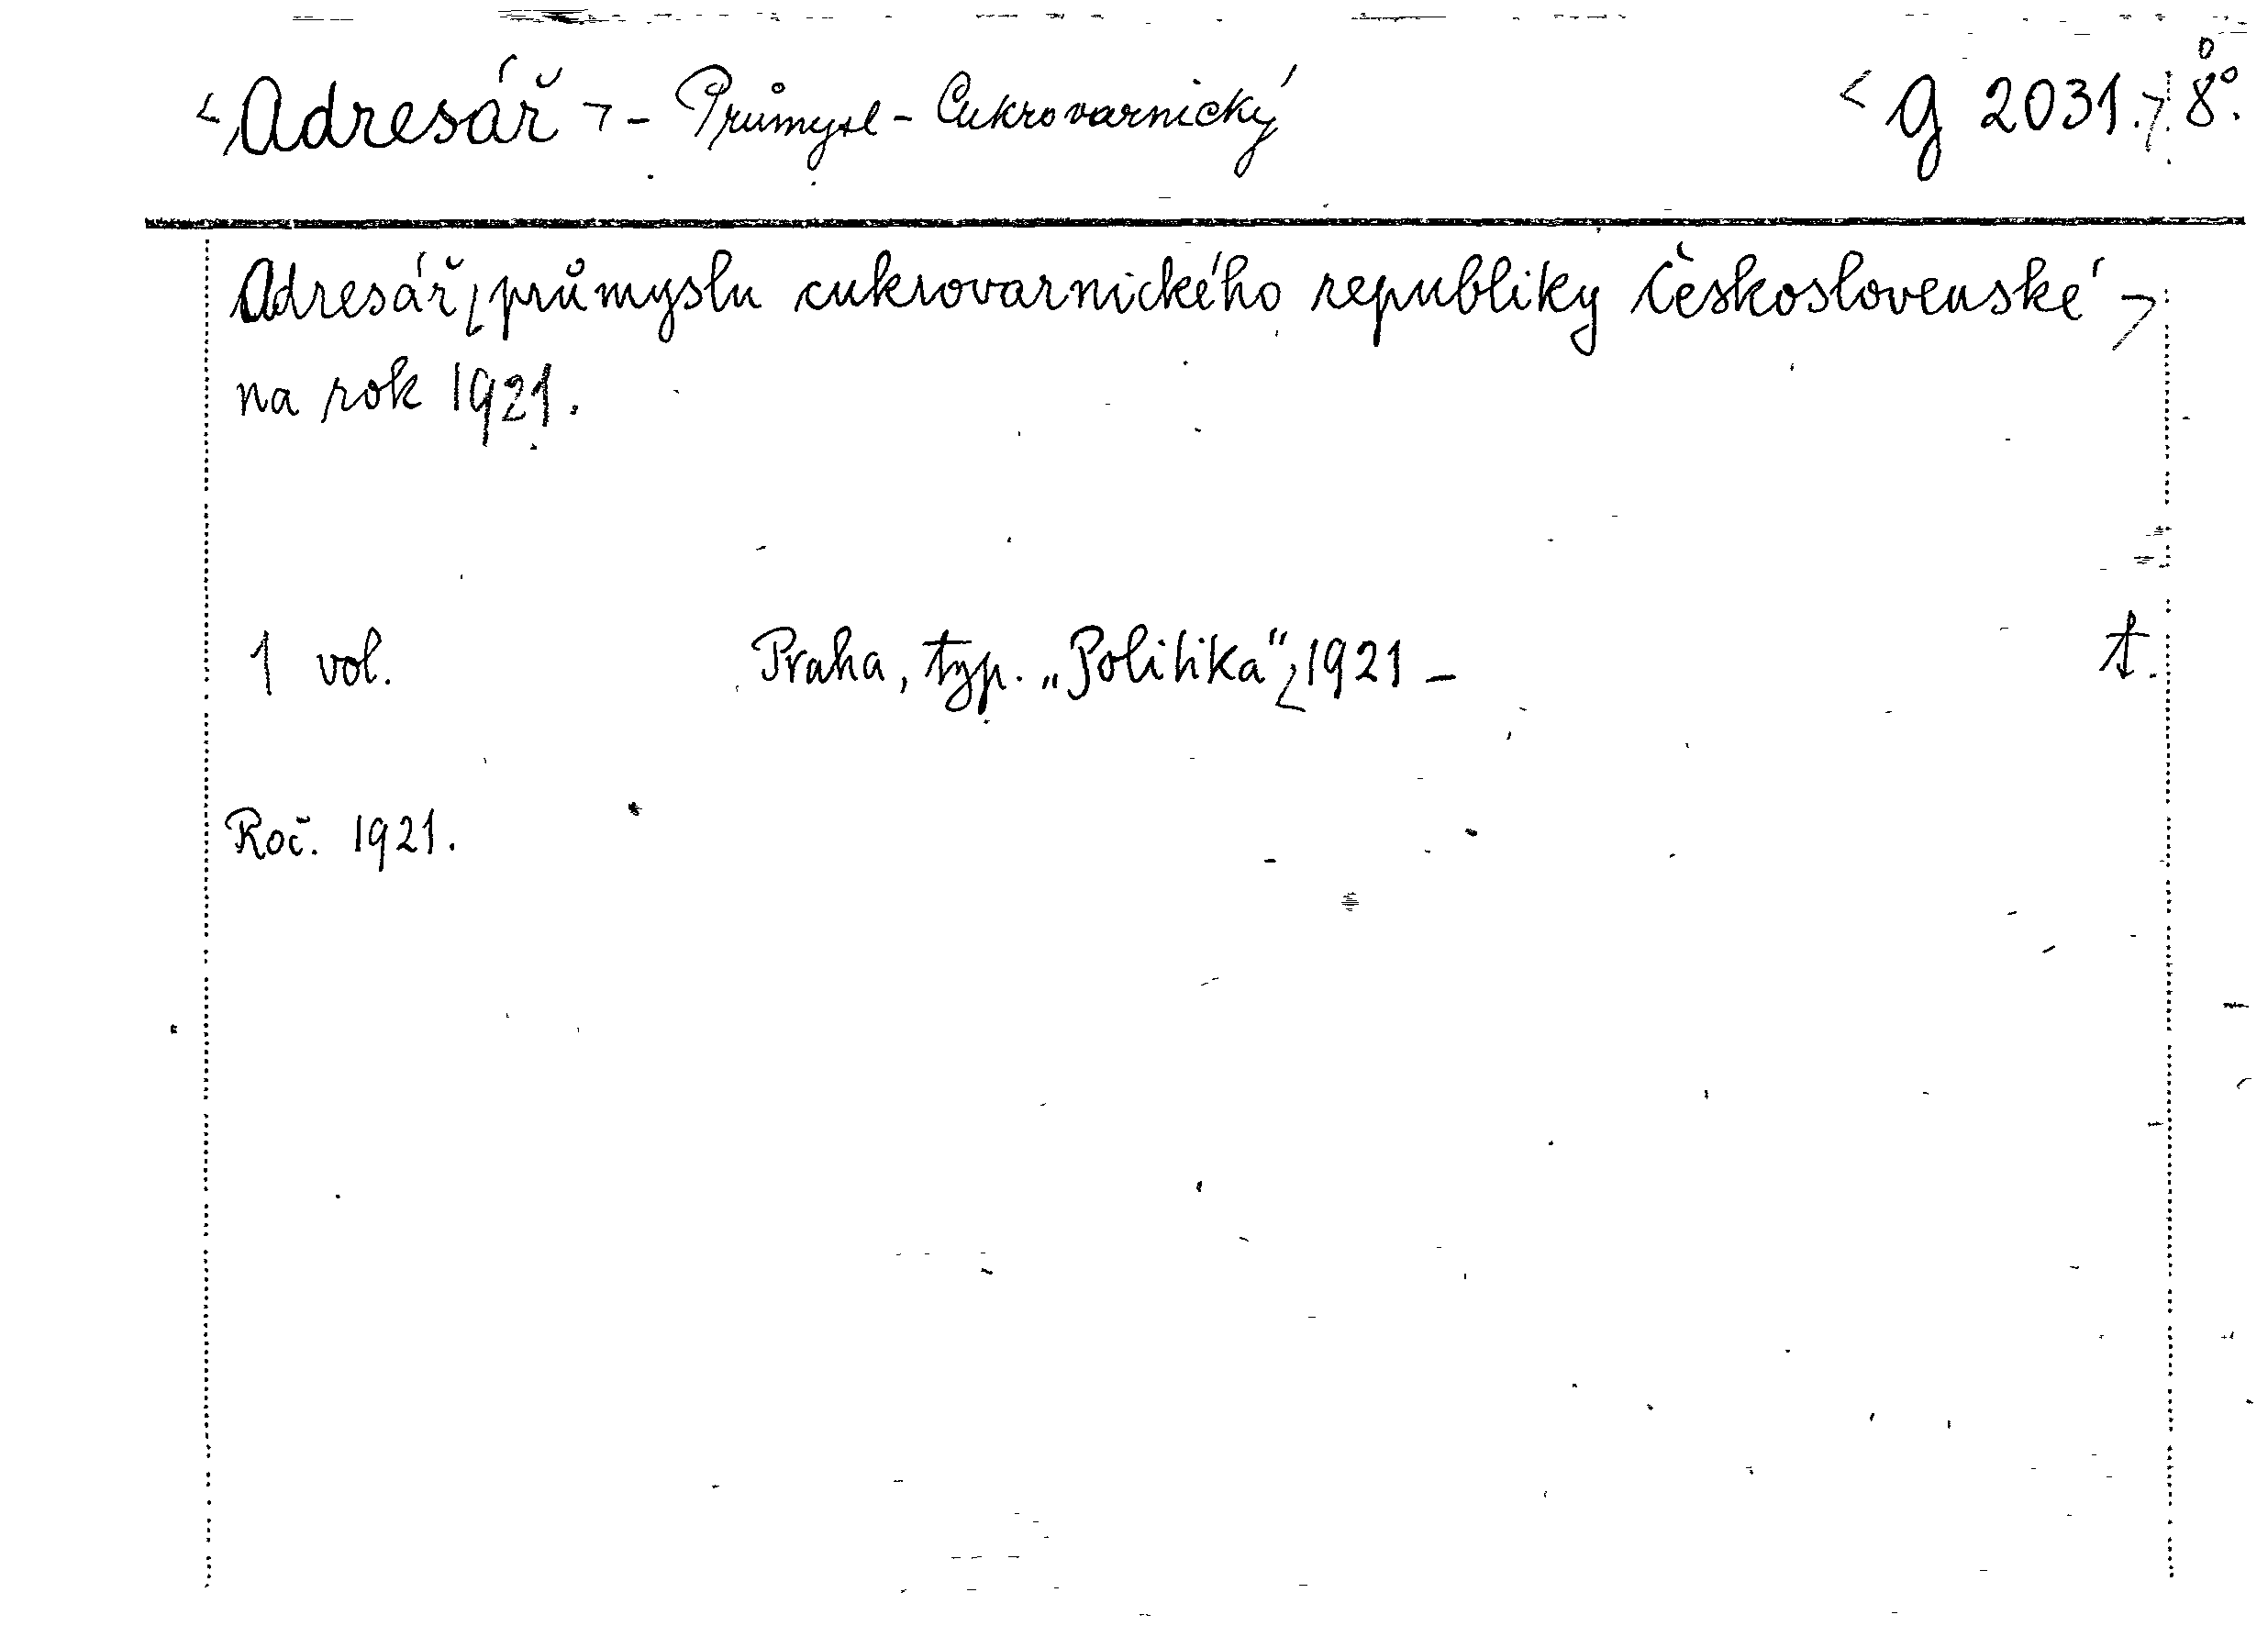 <Adresář> - Průmysl - Cukrovarnický <G 2031.> 8°.
Adresář <průmyslu cukrovarnického republiky Československé>
na rok 1921.
1 vol. Praha, typ. „Politika“, <1921 - t.
Roč. 1921.